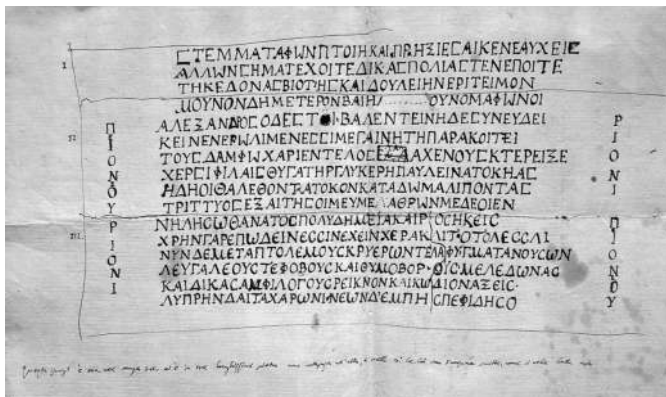 I
ϹΤΕΜΜΑΤΑΦΩΝΠΤΟΙΗΚΑΙΠΡΗΞΙΕϹΑΙΚΕΝΕΑΥΧΕΙϹ
ΑΛΛΩΝϹΗΜΑΤΕΧΟΙΤΕΔΙΚΑϹΠΟΛΙΑϹΤΕΝΕΠΟΙΤΕ
ΤΗΚΕΔΟΝΑϹΒΙΟΤΗϹΚΑΙΔΟΥΛΕΙΗΝΕΡΙΤΕΙΜΟΝ
ΜΟΥΝΟΝΔΗΜΕΤΕΡΟΝΒΑΙΗ ......... ΟΥΝΟΜΑΦΩΝΟΙ
II
ΑΛΕΞΑΝΔΡΟϹΟΔΕϹΤ ΒΑΛΕΝΤΕΙΝΗΔΕϹΥΝΕΥΔΕΙ
ΚΕΙΝΕΝΕΡΩΛΙΜΕΝΕϹϹΙΜΕΓΑΙΝΗΤΗΠΑΡΑΚΟΙΤΕΙ
ΤΟΥϹΔΑΜΦΩΧΑΡΙΕΝΤΕΛΟϹ ΛΑΧΕΝΟΥϹΚΤΕΡΕΙΞΕ
ΧΕΡϹΙΦΙΛΑΙϹΘΥΓΑΤΗΡΓΛΥΚΕΡΗΠΑΥΛΕΙΝΑΤΟΚΗΑϹ
ΗΔΗΟΙΘΑΛΕΘΟΝΤΑΤΟΚΟΝΚΑΤΑΔΩΜΑΛΙΠΟΝΤΑϹ
ΤΡΙΤΤΥΟϹΕΞΑΙΤΗϹΟΙΜΕΥΜΕΛΑΘΡΩΝΜΕΔΕΟΙΕΝ
III
ΝΗΛΗϹΩΘΑΝΑΤΟϹΠΟΛΥΔΗΜΕΓΑΚΑΙΡΟϹΗΚΕΙϹ
ΧΡΗΝΓΑΡΕΠΩΔΕΙΝΕϹϹΙΝΕΧΕΙΝΧΕΡΑΚ ΛΙΤ ΟΤΟΛΕϹϹΛΙ
ΝΥΝΔΕΜΕΤΑΠΤΟΛΕΜΟΥϹΚΡΥΕΡΩΝΤΕΛΑΦΥΓΜΑΤΑΝΟΥϹΩΝ
ΛΕΥΓΑΛΕΟΥϹΤΕΦΟΒΟΥϹΚΑΙΘΥΜΟΒΟΡ ΟΙϹΜΕΛΕΔΩΝΑϹ
ΚΑΙΔΙΚΑϹΑΜΦΙΛΟΓΟΥϹΡΕΙΚΝΟΝΚΑΙΚΩΔΙΟΝΑΞΕΙϹ
ΛΥΠΡΗΝΔΑΙΤΑΧΑΡΩΝΙΝΕΩΝΔΕΜΠΗϹΠΕΦΙΔΗϹΟ
ΠΙΟΝΟΥ
ΡΙΟΝΙ
ΡΙΟΝΙ
ΠΙΟΝΟΥ